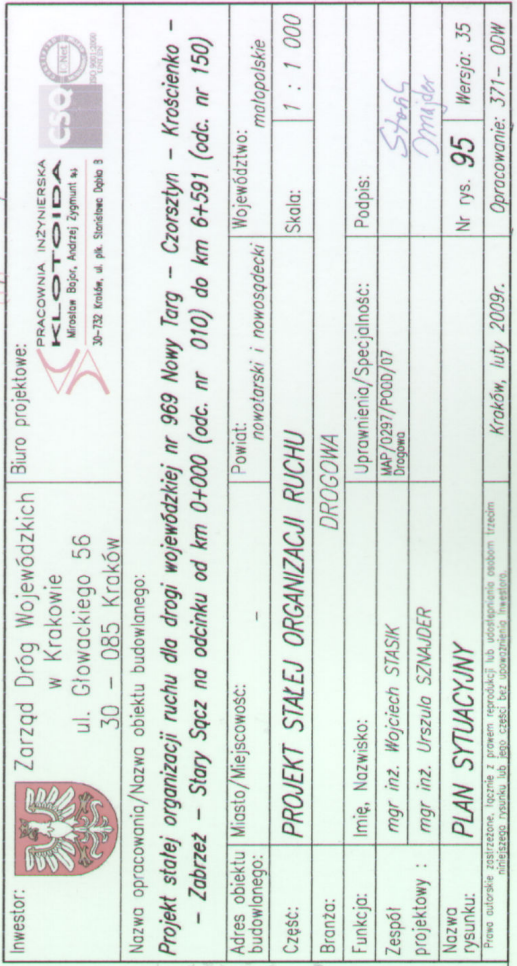 Inwestor:
Zarząd Dróg Wojewódzkich
w Krakowie
ul. Głowackiego 56
30 – 085 Kraków
Biuro projektowe:
PRACOWNIA INŻYNIERSKA
KLOTOIDA
Mirosław Bajor, Andrzej Zygmunt
30-732 Kraków, ul. płk. Stanisława Dąbka 8
CSQ
IQNet
ISO 9001:2000
Nazwa opracowania/Nazwa obiektu budowlanego:
Projekt stałej organizacji ruchu dla drogi wojewódzkiej nr 969 Nowy Targ – Czorsztyn – Krościenko –
– Zabrzeż – Stary Sącz na odcinku od km 0+000 (odc. nr 010) do km 6+591 (odc. nr 150)
Adres obiektu budowlanego:
Miasto/Miejscowość:
–
Powiat:
nowotarski i nowosądecki
Województwo:
małopolskie
Część:
PROJEKT STAŁEJ ORGANIZACJI RUCHU
Skala:
1 : 1 000
Branża:
DROGOWA
Funkcja:
Imię, Nazwisko:
Uprawnienia/Specjalność:
Podpis:
Zespół
projektowy :
mgr inż. Wojciech STASIK
MAP/0297/POOD/07
Drogowa
mgr inż. Urszula SZNAJDER
Nazwa
rysunku:
PLAN SYTUACYJNY
Nr rys. 95
Wersja: 35
Prawa autorskie zastrzeżone, łącznie z prawem reprodukcji lub udostępniania osobom trzecim
niniejszego rysunku lub jego części bez upoważnienia Inwestora.
Kraków, luty 2009r.
Opracowanie: 371– ODW